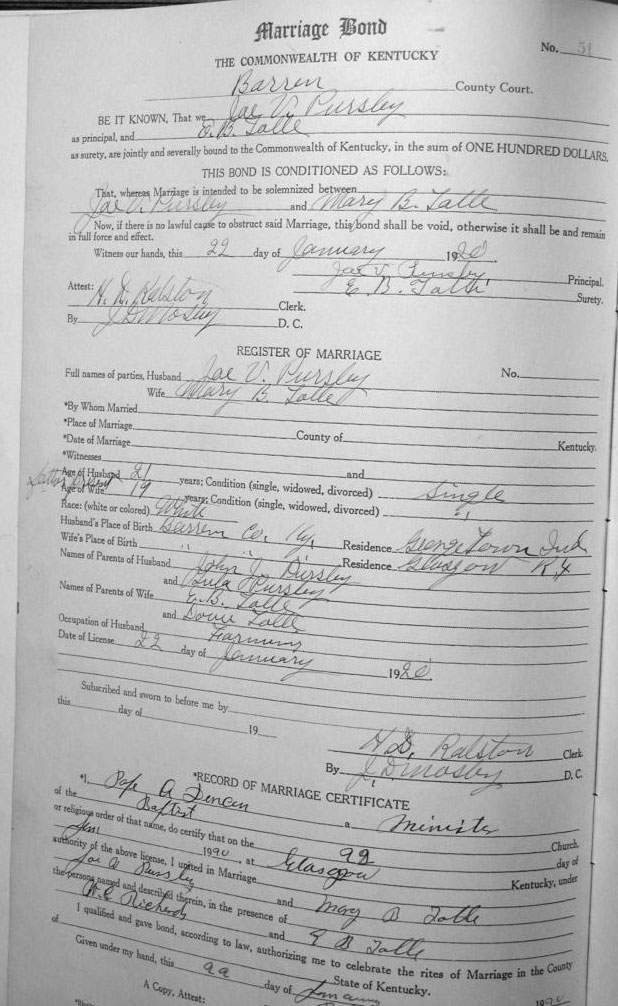 Marriage Bond
No. 51
THE COMMONWEALTH OF KENTUCKY
Barren County Court.
BE IT KNOWN, That we Joe V. Pursley
as principal, and E. B. Tolle
as surety, are jointly and severally bound to the Commonwealth of Kentucky, in the sum of ONE HUNDRED DOLLARS.
THIS BOND IS CONDITIONED AS FOLLOWS:
That, whereas Marriage is intended to be solemnized between
Joe V. Pursley and Mary B. Tolle
Now, if there is no lawful cause to obstruct said Marriage, this bond shall be void, otherwise it shall be and remain
in full force and effect.
Witness our hands, this 22 day of January 1920
Joe V. Pursley Principal.
E. B. Tolle Surety.
Attest:
H. D. Ralston Clerk.
By J D Mosby D. C.
REGISTER OF MARRIAGE
Full names of parties, Husband Joe V. Pursley No.
Wife Mary B Tolle
*By Whom Married
*Place of Marriage County of Kentucky.
*Date of Marriage
*Witnesses and
Age of Husband 21 years; Condition (single, widowed, divorced) Single
father present
Age of Wife 19 years; Condition (single, widowed, divorced) "
Race: (white or colored) White
Husband's Place of Birth Barren Co, Ky, Residence Georgetown Ind
Wife's Place of Birth " " " Residence Glasgow Ky
Names of Parents of Husband John J. Pursley
and Lula Pursley
Names of Parents of Wife E. B. Tolle
and Dovie Tolle
Occupation of Husband Farming
Date of License 22 day of January 1920.
Subscribed and sworn to before me by
this day of 19
H.D. Ralston Clerk
By J, D Mosby D. C.
*RECORD OF MARRIAGE CERTIFICATE
*I, Pope A Duncan a Minister
of the Baptist Church,
or religious order of that name, do certify that on the 22 day of
Jan 1920, at Glasgow Kentucky, under
authority of the above license, I united in Marriage
Joe V Pursley and Mary B Tolle
the persons named and described therein, in the presence of
W. C Richards and E B Tolle
I qualified and gave bond, according to law, authorizing me to celebrate the rites of Marriage in the County
of State of Kentucky.
Given under my hand, this 22 day of January 1920
A Copy, Attest: